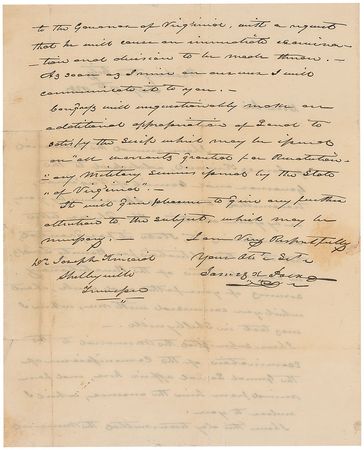 to the Governor of Virginia, with a request
that he will cause an immediate examina-
-tion and decision to be made thereon. -
As soon as I receive an answer I will
communicate it to you. -
Congress will unquestionably make an
additional appropriation of Land to
satisfy the Scrip which may be issued
on "all warrants granted for Revolution-
"ary Military services issued by the State
"of Virginia". -
It will give pleasure to give any further
attention to the subject, which may be
necessary. - I am Very Respectfully
Dr. Joseph Kincaid Your Obt. Svt.
Shelbyville James K. Polk
Tennessee